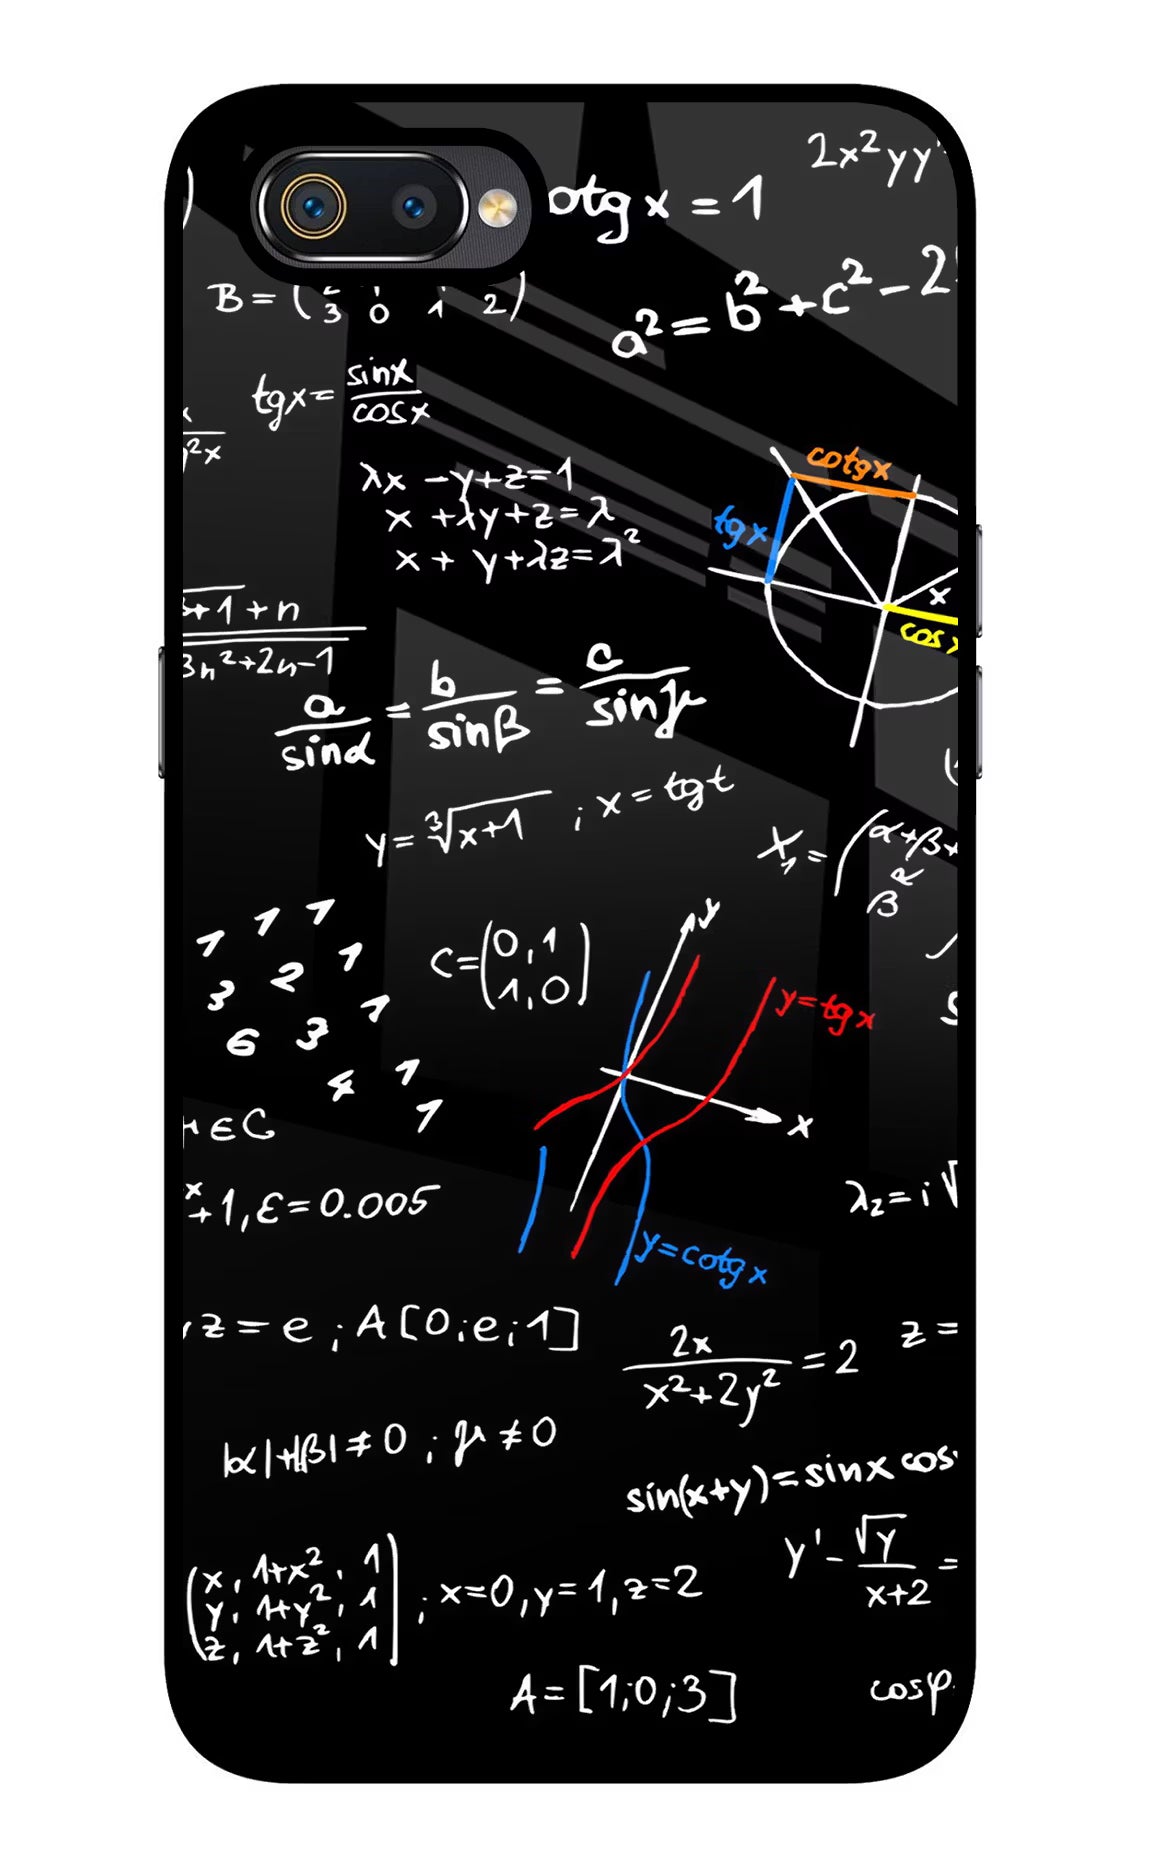 2x²yy'
otg x = 1
B = ( 3 0 1 2 )
a² = b² + c² - 2
tgx = sinx / cosx
²x
λx - y + z = 1
x + λy + z = λ
x + y + λz = λ²
cotgx
tgx
x
cos
+1 + n
3n² + 2n - 1
a / sinα = b / sinβ = c / sinγ
y = ∛x+1 ; x = tgt
X₁ = ( α+β+
β²
1 1 1
3 2 1
6 3 1
4 1
1
C = ( 0, 1
1, 0 )
y
y = tgx
x
y = cotgx
∈C
x
+1, ε = 0.005
λ₂ = i√
z = e ; A[0;e;1]
2x / x² + 2y² = 2
z =
|α|+|β| ≠ 0 ; γ ≠ 0
sin(x+y) = sinx cos
y' - √y / x+2 =
( x, 1+x², 1
y, 1+y², 1
z, 1+z², 1 ) ; x=0, y=1, z=2
A = [1;0;3]
cosφ